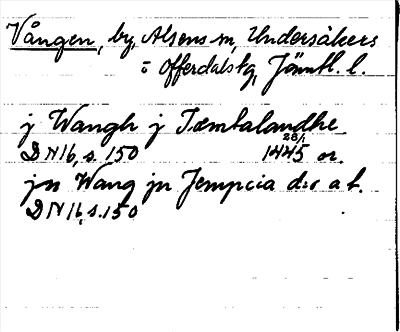 Vången, by, Alsens sn, Undersåkers
o Offerdals tg, Jämtl. l.
j Wangh j Iæmtalandhe
DN 16, s. 150 28/1 1445 or.
jn Wang jn Jempcia d:o a b.
DN 16, s. 150